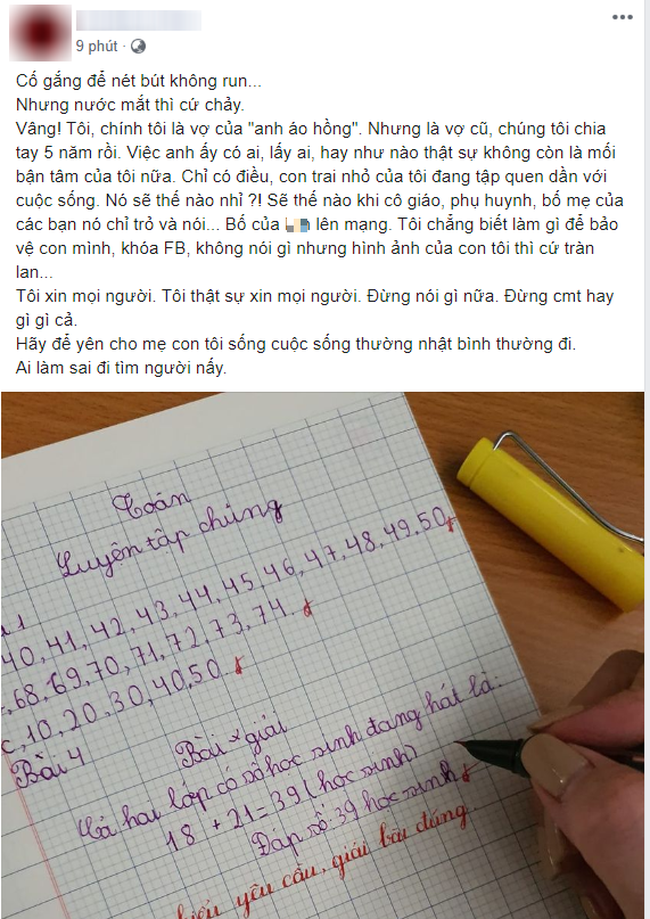 9 phút
Cố gắng để nét bút không run...
Nhưng nước mắt thì cứ chảy.
Vâng! Tôi, chính tôi là vợ của "anh áo hồng". Nhưng là vợ cũ, chúng tôi chia
tay 5 năm rồi. Việc anh ấy có ai, lấy ai, hay như nào thật sự không còn là mối
bận tâm của tôi nữa. Chỉ có điều, con trai nhỏ của tôi đang tập quen dần với
cuộc sống. Nó sẽ thế nào nhỉ ?! Sẽ thế nào khi cô giáo, phụ huynh, bố mẹ của
các bạn nó chỉ trỏ và nói... Bố của lên mạng. Tôi chẳng biết làm gì để bảo
vệ con mình, khóa FB, không nói gì nhưng hình ảnh của con tôi thì cứ tràn
lan...
Tôi xin mọi người. Tôi thật sự xin mọi người. Đừng nói gì nữa. Đừng cmt hay
gì gì cả.
Hãy để yên cho mẹ con tôi sống cuộc sống thường nhật bình thường đi.
Ai làm sai đi tìm người nấy.
Toán
Luyện tập chung
1
40, 41, 42, 43, 44, 45, 46, 47, 48, 49, 50
, 68, 69, 70, 71, 72, 73, 74.
c, 10, 20, 30, 40, 50
Bài 4
Bài giải
Cả hai lớp có số học sinh đang hát là:
18 + 21 = 39 (học sinh)
Đáp số: 39 học sinh
hiểu yêu cầu, giải bài đúng.